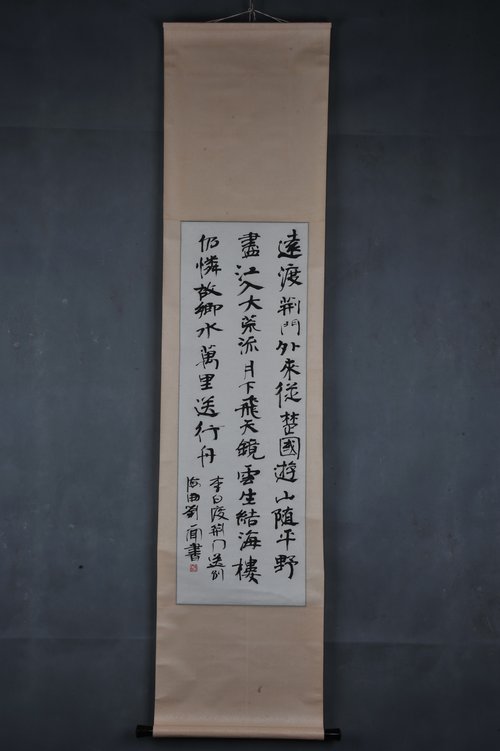 遠渡荆門外來從楚國遊山随平野
盡江入大荒流月下飛天鏡雲生結海樓
仍憐故鄉水萬里送行舟
李白渡荆门送别
海曲劉一聞書